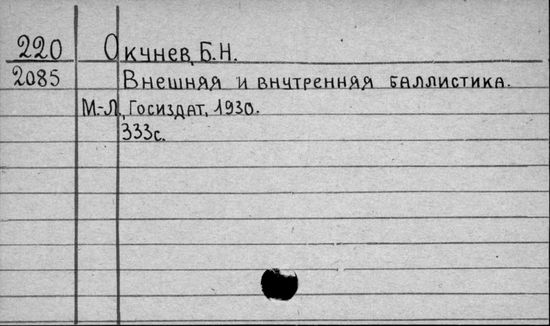 220 Окунев, Б.Н.
2085 Внешняя и внутренняя баллистика.
М.-Л., Госиздат, 1930.
333с.